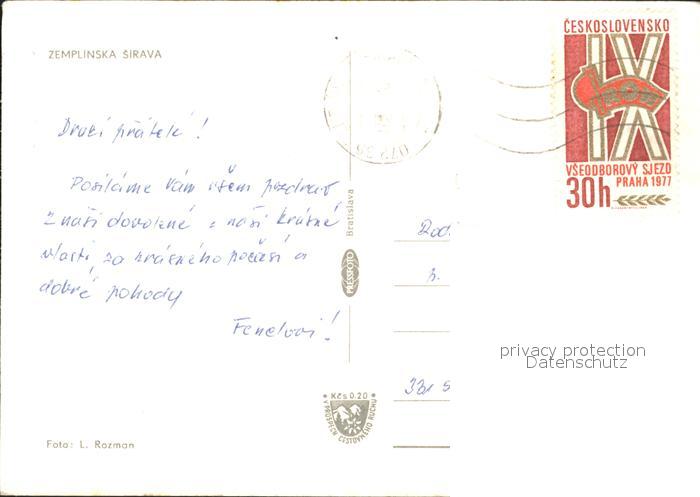 ZEMPLÍNSKA ŠÍRAVA
Drazí přátelé!
Posíláme Vám všem pozdrav
z naší dovolené z naší krásné
vlasti za krásného počasí a
dobré pohody
!
Foto: L. Rozman
Bratislava
PRESSFOTO
Kčs 0.20
V PROSPECH CESTOVNÉHO RUCHU
072 35
ČESKOSLOVENSKO
IX
VŠEODBOROVÝ SJEZD
PRAHA 1977
30h
Rodi
331 5
privacy protection
Datenschutz